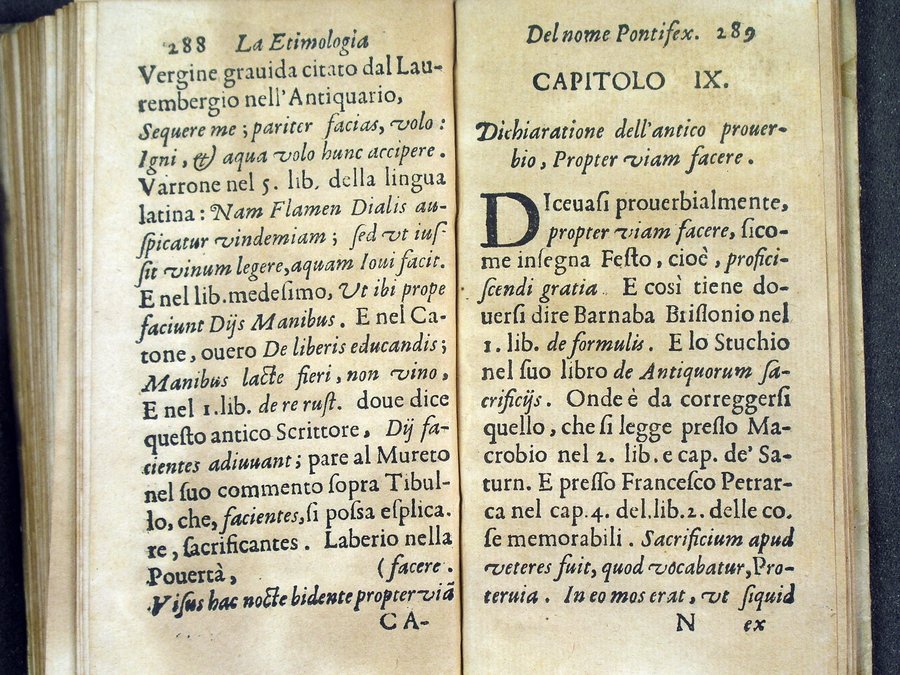 288 La Etimologia
Vergine grauida citato dal Lau-
rembergio nell'Antiquario,
Sequere me ; pariter facias, volo :
Igni, & aqua volo hunc accipere.
Varrone nel 5. lib. della lingua
latina : Nam Flamen Dialis au-
ſpicatur vindemiam ; ſed vt iuſ-
ſit vinum legere, aquam Ioui facit.
E nel lib. medeſimo, Vt ibi prope
faciunt Dijs Manibus. E nel Ca-
tone, ouero De liberis educandis ;
Manibus lacte fieri, non vino,
E nel 1. lib. de re ruſt. doue dice
queſto antico Scrittore, Dij fa-
cientes adiuuant ; pare al Mureto
nel ſuo commento ſopra Tibul-
lo, che, facientes, ſi poſſa eſplica.
re, ſacrificantes. Laberio nella
Pouertà, (facere.
Viſus hac nocte bidente propter viā
CA-
Del nome Pontifex. 289
CAPITOLO IX.
Dichiaratione dell'antico prouer-
bio, Propter viam facere.
DIceuaſi prouerbialmente,
propter viam facere, ſico-
me inſegna Feſto, cioè, profici-
ſcendi gratia. E così tiene do-
uerſi dire Barnaba Briſſonio nel
1. lib. de formulis. E lo Stuchio
nel ſuo libro de Antiquorum ſa-
crificijs. Onde è da correggerſi
quello, che ſi legge preſſo Ma-
crobio nel 2. lib. e cap. de' Sa-
turn. E preſſo Franceſco Petrar-
ca nel cap. 4. del. lib. 2. delle co.
ſe memorabili. Sacrificium apud
veteres fuit, quod vocabatur, Pro-
teruia. In eo mos erat, vt ſiquid
N ex